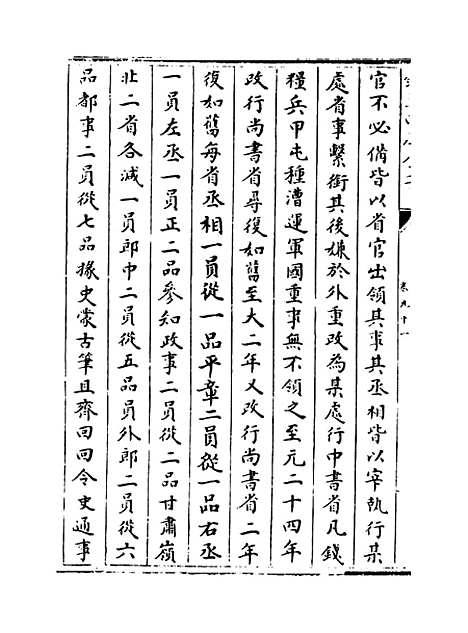 卷九十一
官不必備皆以省官出領其事其丞相皆以宰執行某
處省事繫銜其後嫌於外重改為某處行中書省凡錢
糧兵甲屯種漕運軍國重事無不領之至元二十四年
改行尚書省尋復如舊至大二年又改行尚書省二年
復如舊每省丞相一員從一品平章二員從一品右丞
一員左丞一員正二品參知政事二員從二品甘肅嶺
北二省各減一員郎中二員從五品員外郎二員從六
品都事二員從七品掾史蒙古筆且齊回回令史通事